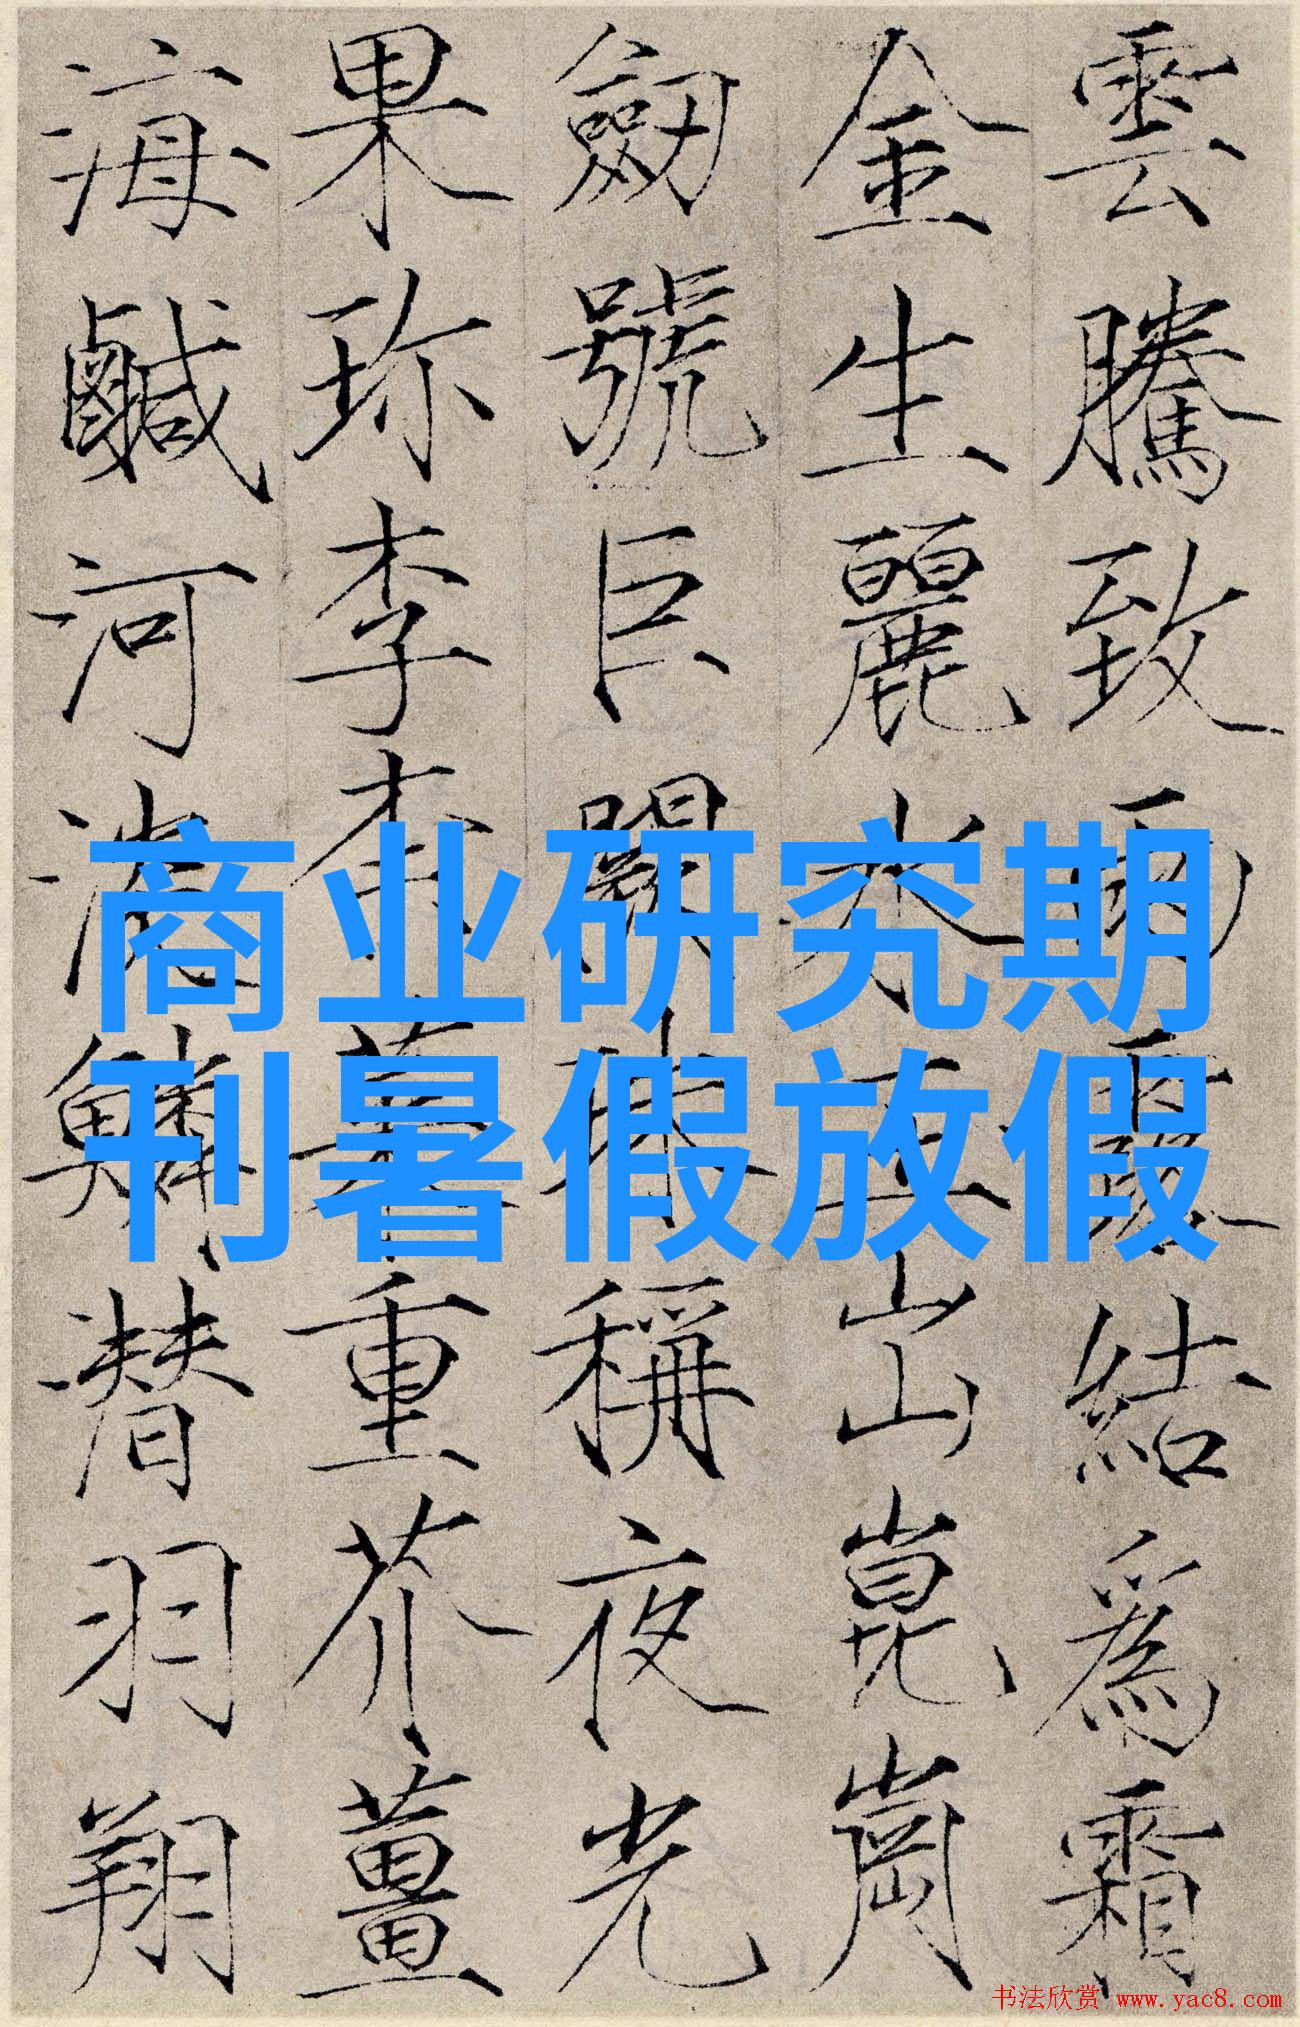 雲騰致雨露結爲霜
金生麗水玉出崑崗
劒號巨闕珠稱夜光
果珎李柰菜重芥薑
海鹹河淡鱗潜羽翔
商业研究期
刊暑假放假
书法欣赏 www.yac8.com